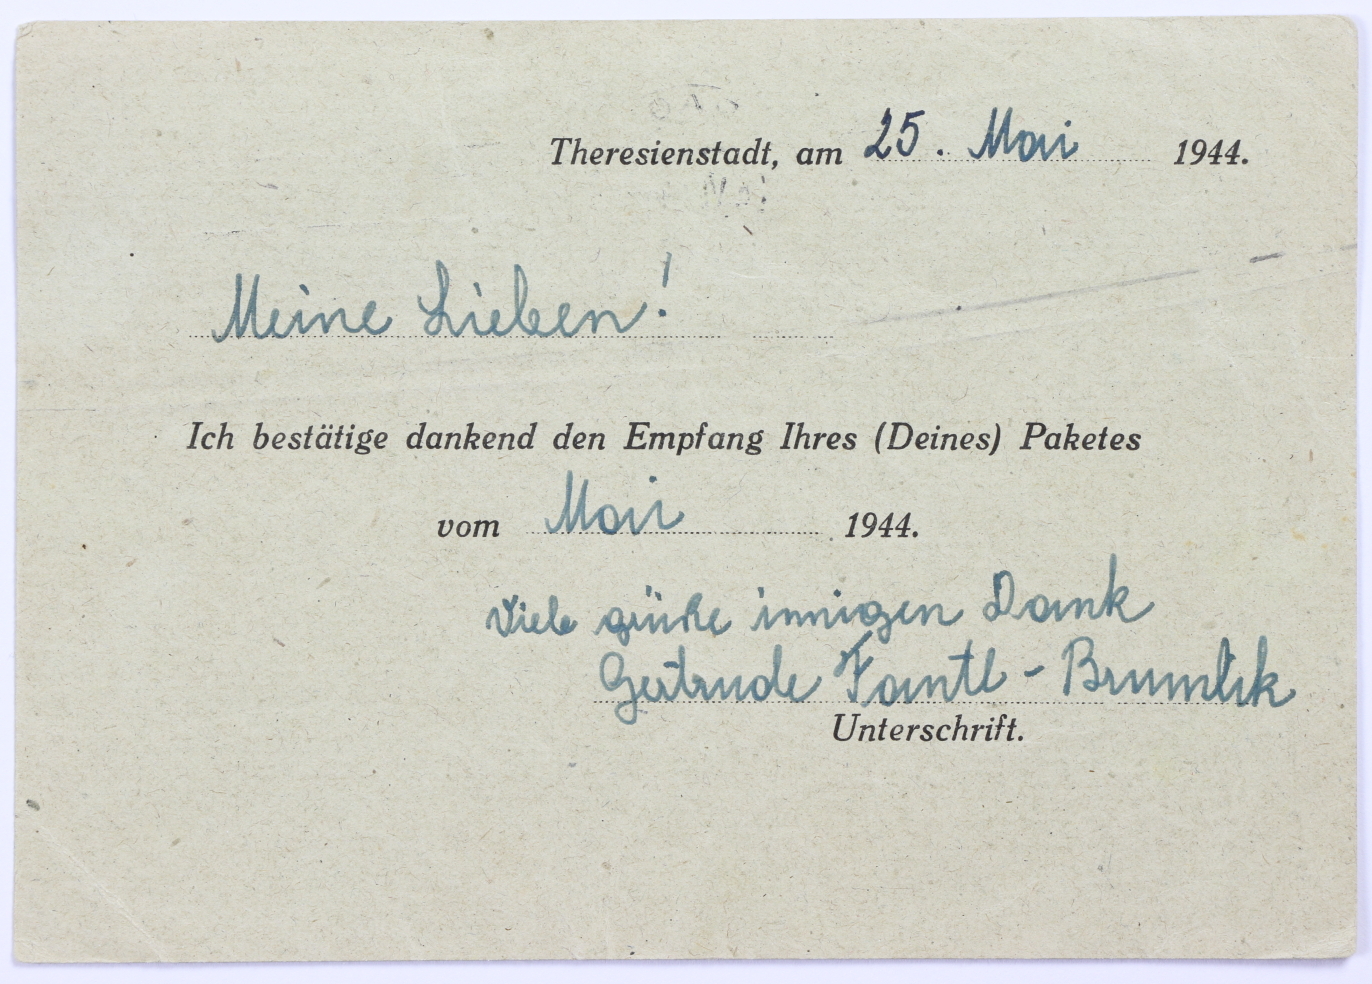 Theresienstadt, am 25. Mai 1944.
Meine Lieben!
Ich bestätige dankend den Empfang Ihres (Deines) Paketes
vom Mai 1944.
Viele grüße innigen Dank
Gertrude Fantl - Brumlik
Unterschrift.